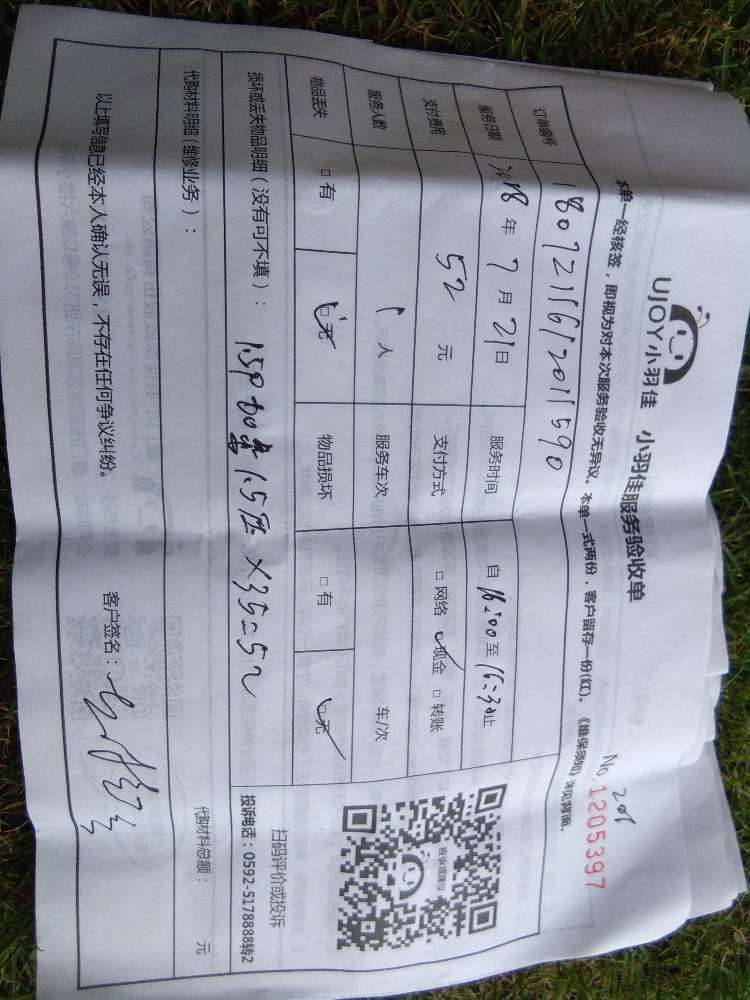 UJOY小羽佳 小羽佳服务验收单
201
No.1205397
本单一经核签，即视为对本次服务验收无异议。本单一式两份，客户留存一份(红)。《维保须知》详见背面。
订单编号 180721161201115 90
服务日期 2018 年 7 月 21 日 服务时间 自 16:00 至 16:30 止
支付费用 52 元 支付方式 □ 网络 □ 现金 □ 转账
服务人数 1 人 服务车次 车/次
物品丢失 □ 有 □ 无 物品损坏 □ 有 □ 无
投诉或建议
扫码评价或投诉
投诉电话：0592-5178888转2
损坏或丢失物品明细（没有可不填）：
1.5P 加 1.5 × 35 = 52
代购材料明细（维修业务）：
代购材料总额： 元
以上填写信息已经本人确认无误，不存在任何争议纠纷。
客户签名：